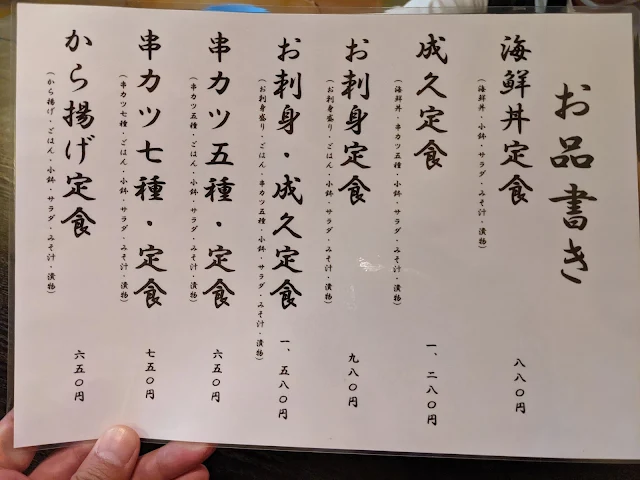 お品書き
海鮮丼定食
(海鮮丼・小鉢・サラダ・みそ汁・漬物)
八八〇円
成久定食
(海鮮丼・串カツ五種・小鉢・サラダ・みそ汁・漬物)
一、二八〇円
お刺身定食
(お刺身盛り・ごはん・小鉢・サラダ・みそ汁・漬物)
九八〇円
お刺身・成久定食
(お刺身盛り・ごはん・串カツ五種・小鉢・サラダ・みそ汁・漬物)
一、五八〇円
串カツ五種・定食
(串カツ五種・ごはん・小鉢・サラダ・みそ汁・漬物)
六五〇円
串カツ七種・定食
(串カツ七種・ごはん・小鉢・サラダ・みそ汁・漬物)
七五〇円
から揚げ定食
(から揚げ・ごはん・小鉢・サラダ・みそ汁・漬物)
六五〇円